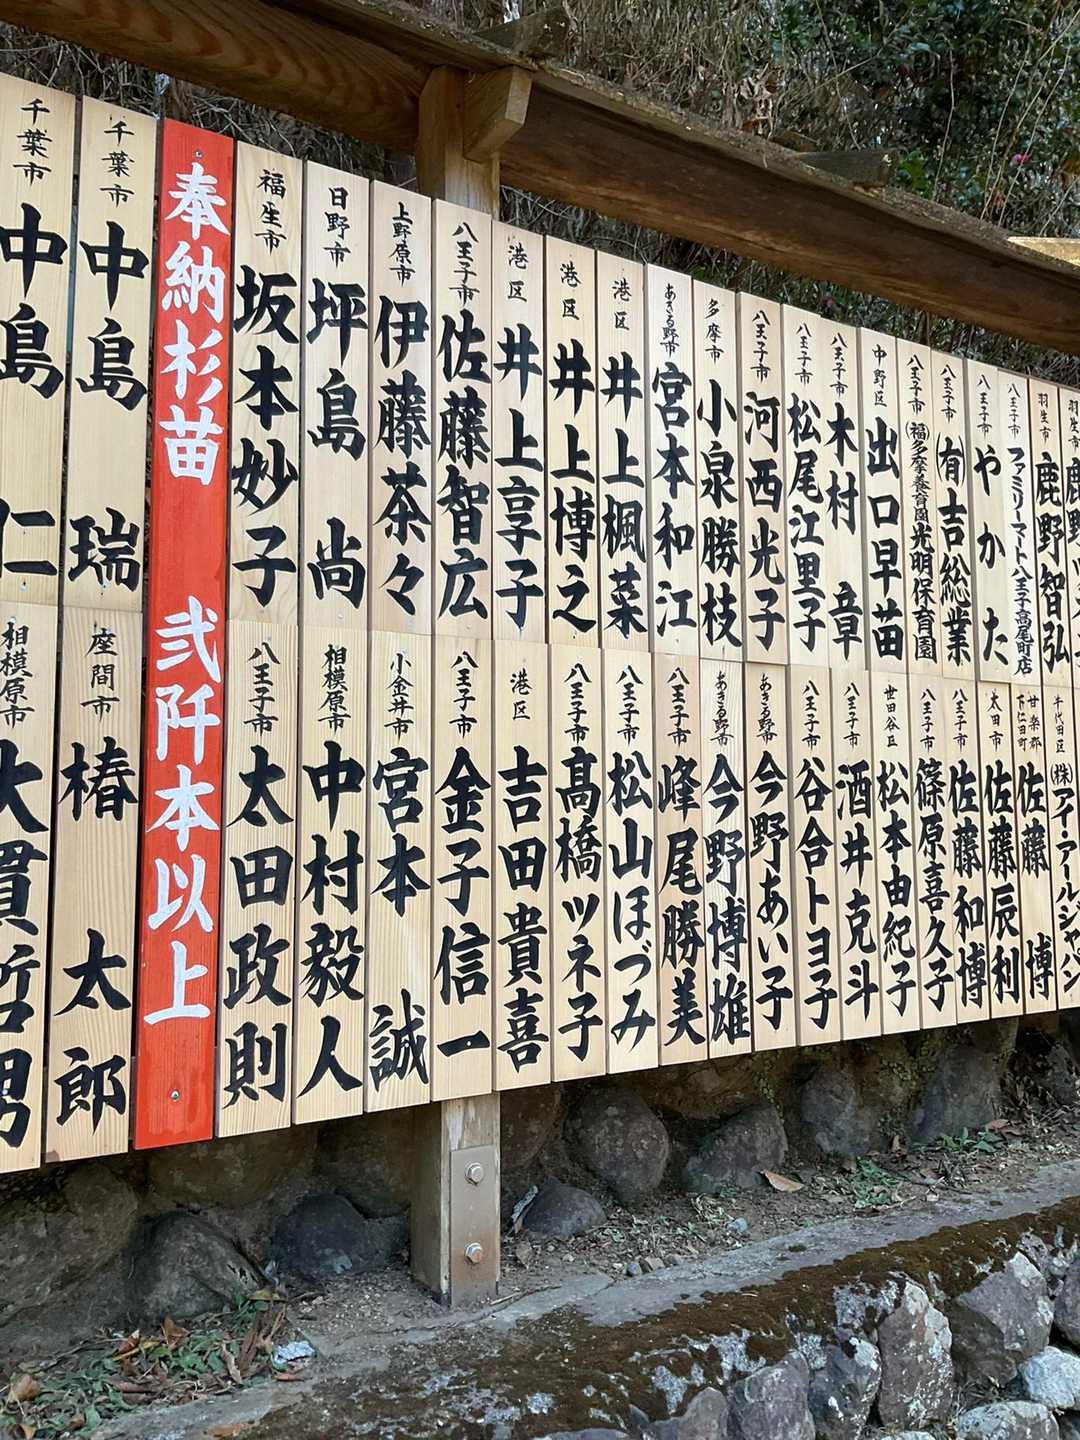 羽生市 鹿野
羽生市 鹿野智弘
八王子市 ファミリーマート八王子高尾町店
八王子市 やかた
八王子市 (有)吉総業
八王子市 (福)多摩養育園光明保育園
中野区 出口早苗
八王子市 木村 章
八王子市 松尾江里子
八王子市 河西光子
多摩市 小泉勝枝
あきる野市 宮本和江
港区 井上楓菜
港区 井上博之
港区 井上享子
八王子市 佐藤智広
上野原市 伊藤茶々
日野市 坪島 尚
福生市 坂本妙子
奉納杉苗 弐阡本以上
千葉市 中島 瑞
千葉市 中島 仁
千代田区 (株)アイ・アールジャパン
甘楽郡下仁田町 佐藤 博
太田市 佐藤辰利
八王子市 佐藤和博
八王子市 篠原喜久子
世田谷区 松本由紀子
八王子市 酒井克斗
八王子市 谷合トヨ子
あきる野市 今野あい子
あきる野市 今野博雄
八王子市 峰尾勝美
八王子市 松山ほづみ
八王子市 髙橋ツネ子
港区 吉田貴喜
八王子市 金子信一
小金井市 宮本 誠
相模原市 中村毅人
八王子市 太田政則
座間市 椿 太郎
相模原市 大貫哲男